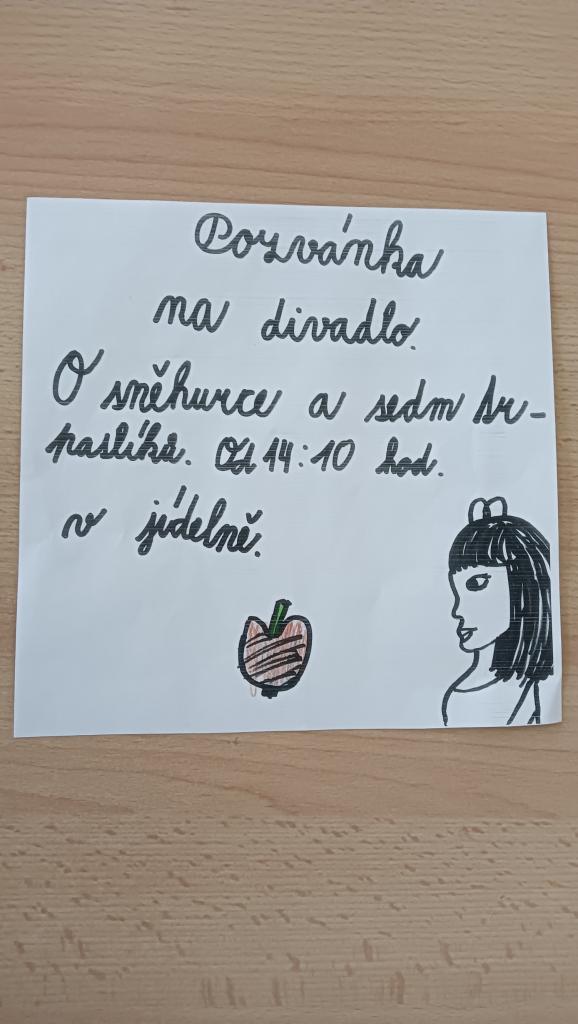 Pozvánka
na divadlo.
O sněhurce a sedm tr-
paslíků. Od 14:10 hod.
v jídelně.